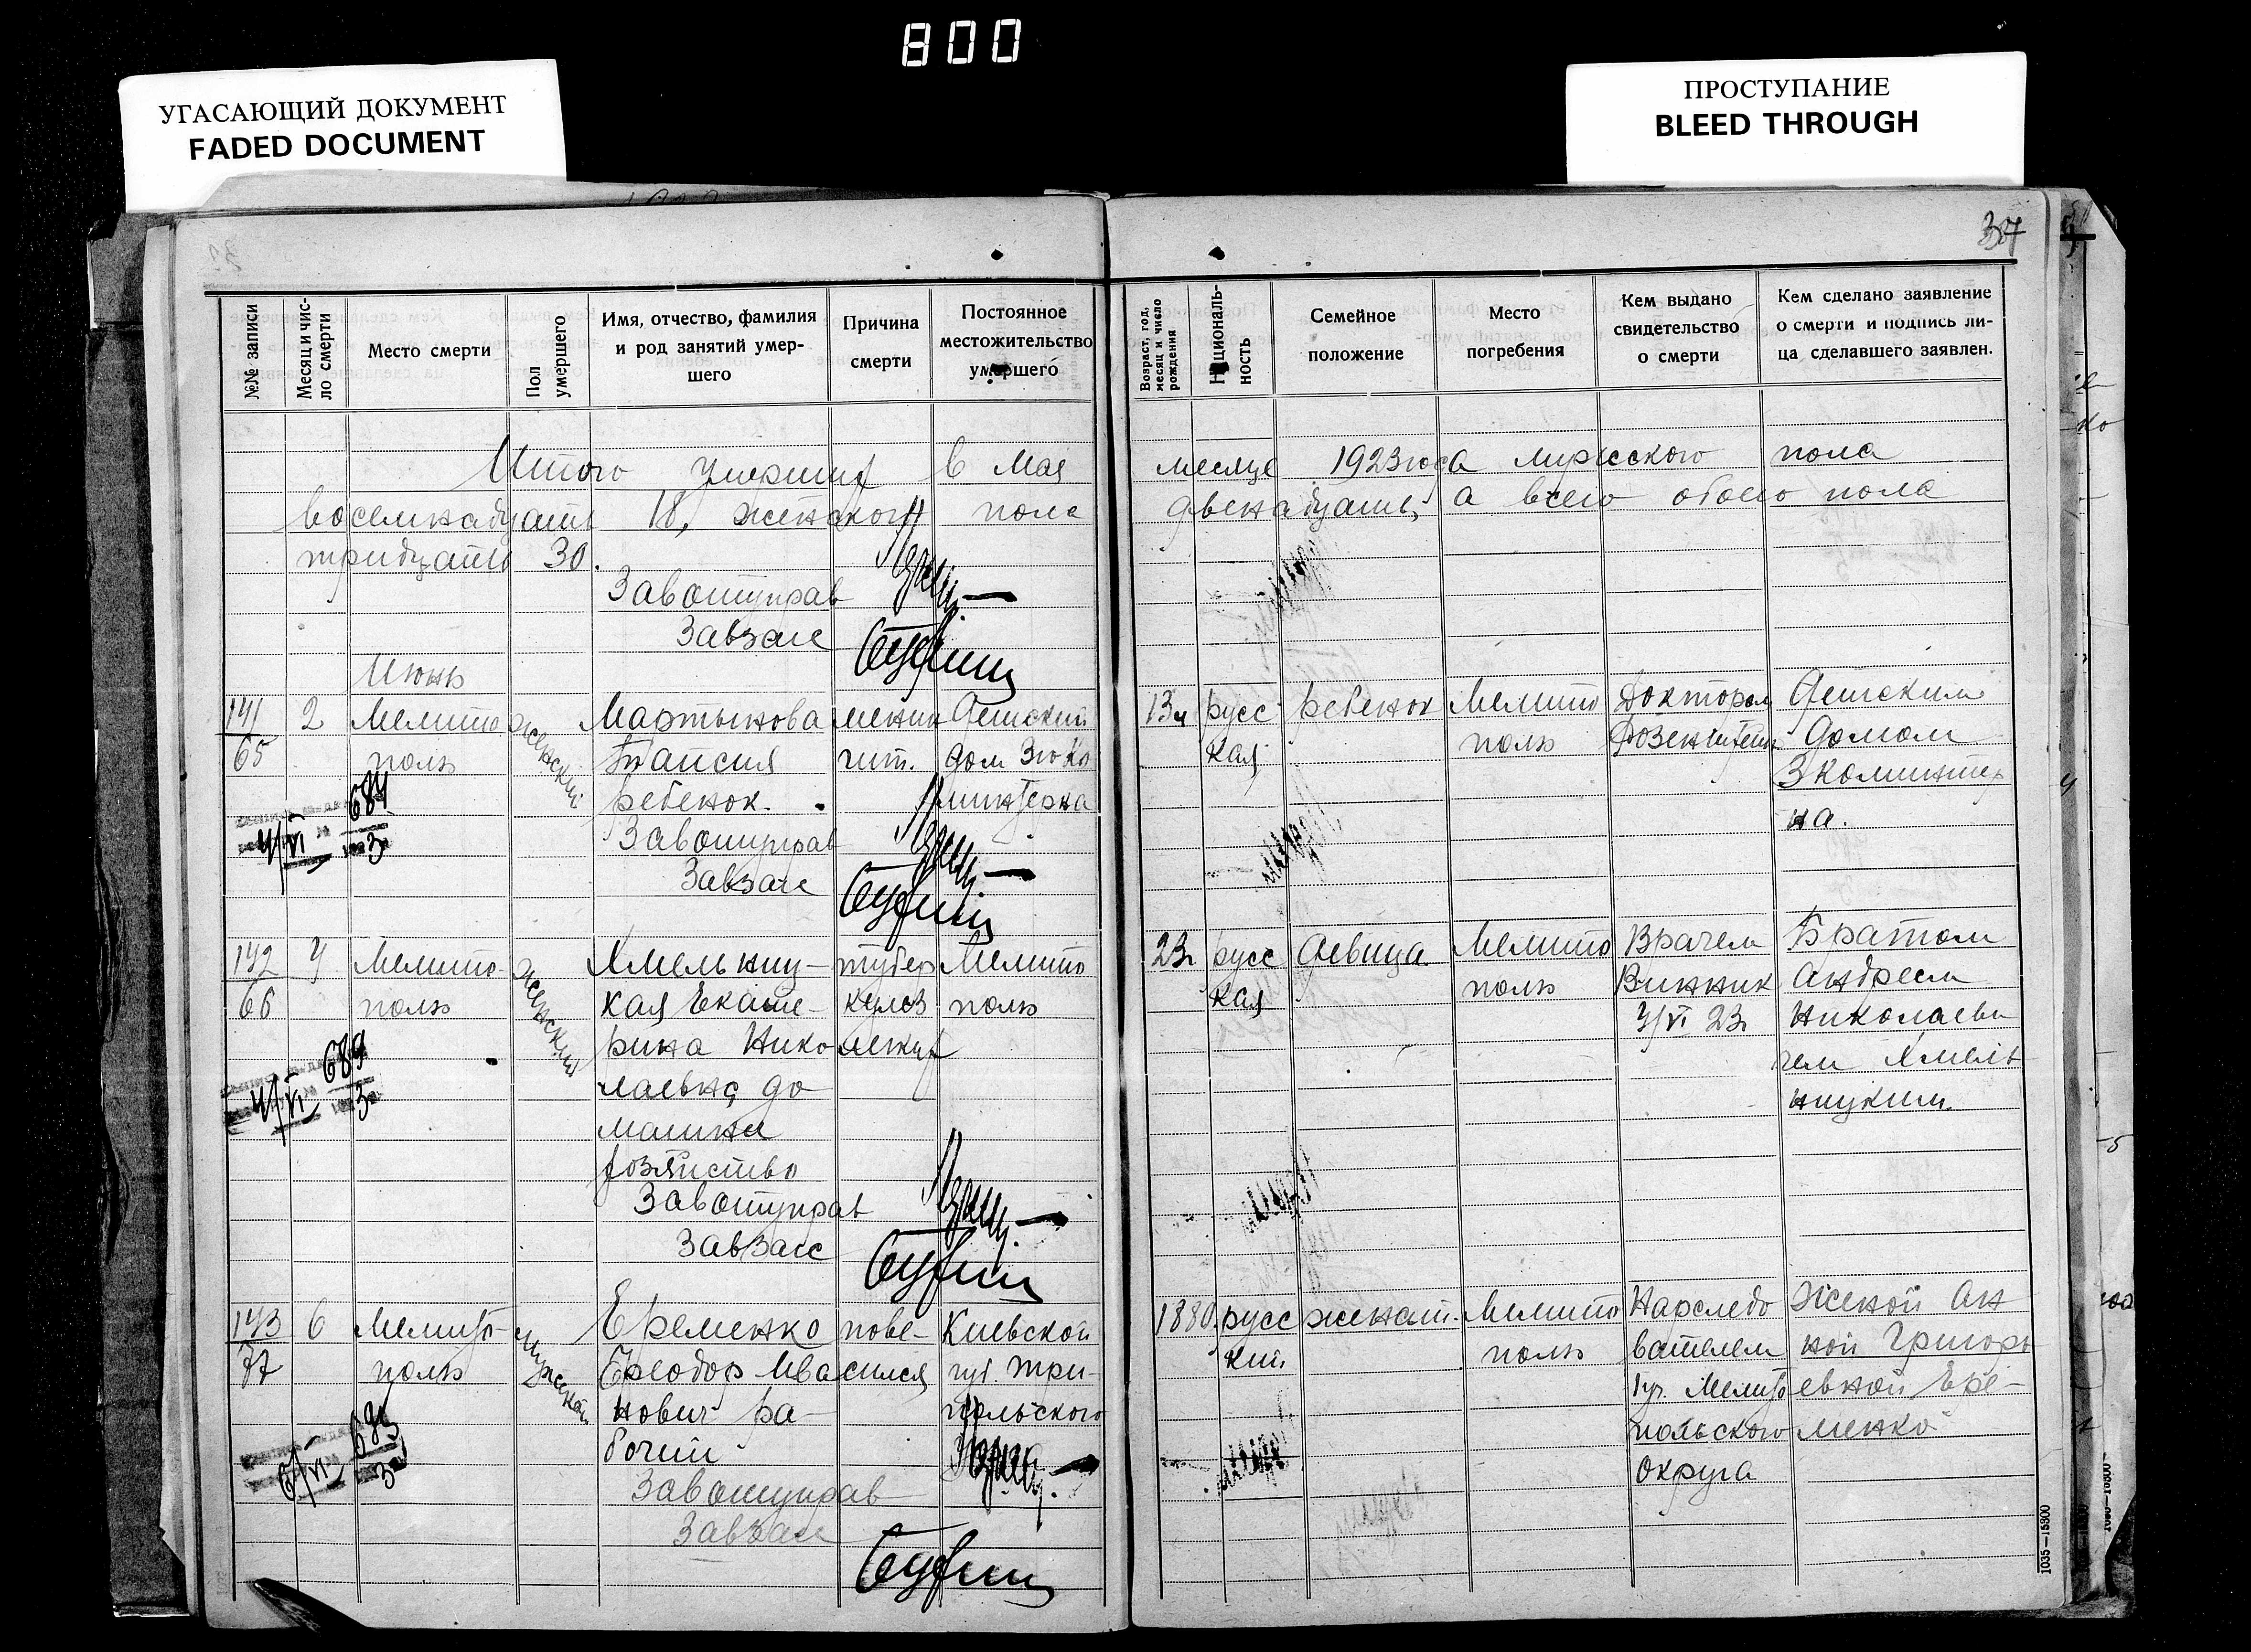 800
УГАСАЮЩИЙ ДОКУМЕНТ
FADED DOCUMENT
ПРОСТУПАНИЕ
BLEED THROUGH
37
№№ записи
Месяц и чис-
ло смерти
Место смерти
Пол
умершего
Имя, отчество, фамилия
и род занятий умер-
шего
Причина
смерти
Постоянное
местожительство
умершего
Возраст, год,
месяц и число
рождения
Националь-
ность
Семейное
положение
Место
погребения
Кем выдано
свидетельство
о смерти
Кем сделано заявление
о смерти и подпись ли-
ца сделавшего заявлен.
Итого умерших в Мая месяце 1923 года мужского пола
восемнадцать 18, женского пола двенадцать, а всего обоего пола
тридцать 30.
Завотуправ
Завзагс
Июнь
141
65
2
Мелито
поль
женский
Мартынова
Таисия
ребенок.
менин
гит.
Детский
дом 3го Ко
минтерна
13
русс
кая
ребенок
Мелито
поль
Доктором
Детским
домом
3 коминтер
на.
4/VI
684
3
Завотуправ
Завзагс
142
66
4
Мелито-
поль
женский
Хмельниц-
кая Екате-
рина Нико
лаевна до
машнее
хозяйство
тубер
кулоз
легких
Мелито
поль
23
русс
кая
девица
Мелито
поль
Врачем
Винник
3/VI 23
Братом
Андреем
Николаеви
чем Хмель
ницким.
4/VI
689
3
Завотуправ
Завзагс
143
77
6
Мелито-
поль
мужской
Еременко
Феодор Ива
нович ра-
бочий
пове-
сился
Киевской
губ. Три-
польского
1880
русс
кий
женат.
Мелито
поль
Нарследо
вателем
1 уч. Мелито
польского
Округа
Женой Ан
ной Григорь
евной Ере-
менко
6/VI
3
Завотуправ
Завзагс
1035—15300